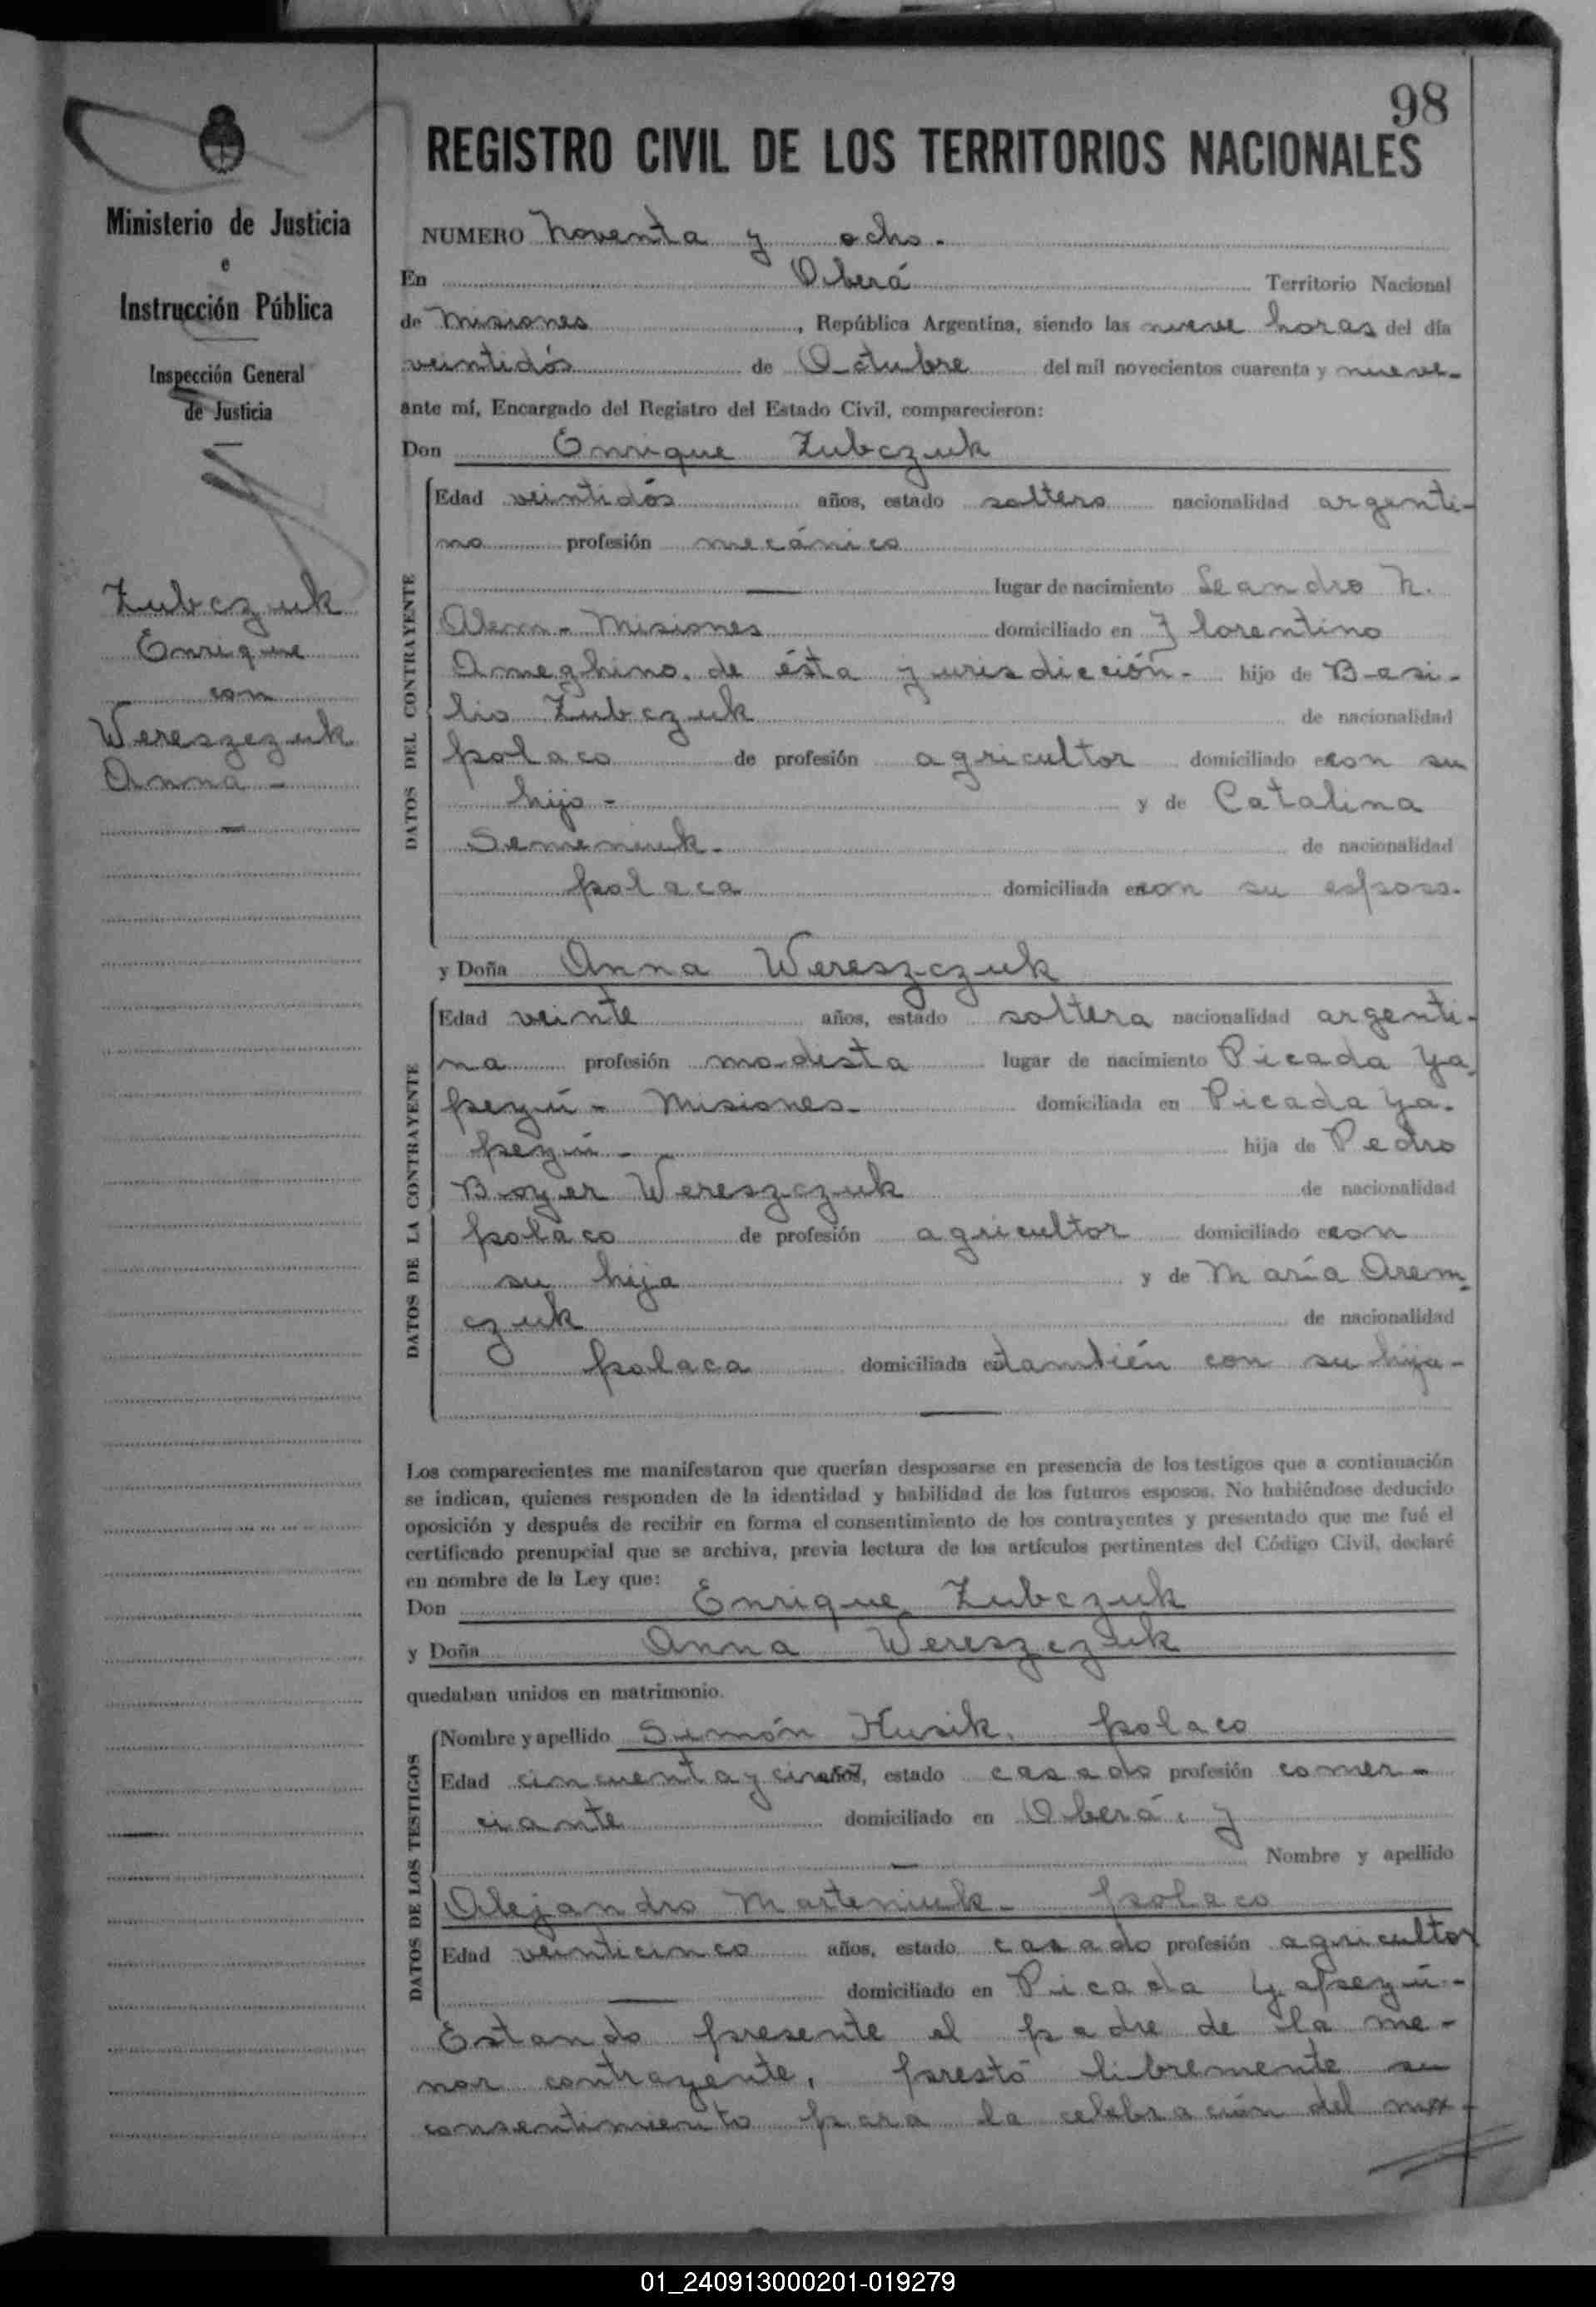 98
REGISTRO CIVIL DE LOS TERRITORIOS NACIONALES
Ministerio de Justicia
e
Instrucción Pública
Inspección General
de Justicia
Zubczuk
Enrique
con
Wereszczuk
Anna -
NUMERO Noventa y ocho.
En Oberá Territorio Nacional
de Misiones, República Argentina, siendo las nueve horas del día
veintidós de Octubre del mil novecientos cuarenta y nueve-
ante mí, Encargado del Registro del Estado Civil, comparecieron:
Don Enrique Zubczuk
DATOS DEL CONTRAYENTE
Edad veintidós años, estado soltero nacionalidad argenti-
no profesión mecánico
lugar de nacimiento Leandro N.
Alem - Misiones domiciliado en Florentino
Ameghino, de ésta jurisdicción- hijo de Basi-
lio Zubczuk de nacionalidad
polaco de profesión agricultor domiciliado con su
hijo - y de Catalina
Semeniuk - de nacionalidad
polaca domiciliada con su esposo.
y Doña Anna Wereszczuk
DATOS DE LA CONTRAYENTE
Edad veinte años, estado soltera nacionalidad argenti-
na profesión modista lugar de nacimiento Picada Ya-
peyú - Misiones- domiciliada en Picada Ya-
peyú - hija de Pedro
Wereszczuk de nacionalidad
polaco de profesión agricultor domiciliado con
su hija y de María Arem-
czuk de nacionalidad
polaca domiciliada también con su hija-
Los comparecientes me manifestaron que querían desposarse en presencia de los testigos que a continuación
se indican, quienes responden de la identidad y habilidad de los futuros esposos. No habiéndose deducido
oposición y después de recibir en forma el consentimiento de los contrayentes y presentado que me fué el
certificado prenupcial que se archiva, previa lectura de los artículos pertinentes del Código Civil, declaré
en nombre de la Ley que:
Don Enrique Zubczuk
y Doña Anna Wereszczuk
quedaban unidos en matrimonio.
DATOS DE LOS TESTIGOS
Nombre y apellido Simón Husik, polaco
Edad cincuenta y años, estado casado profesión comer-
ciante domiciliado en Oberá, y
Nombre y apellido
Alejandro Marteniuk - polaco
Edad veinticinco años, estado casado profesión agricultor
domiciliado en Picada Yapeyú -
Estando presente el padre de la me-
nor contrayente, prestó libremente su
consentimiento para la celebración del ma-
01_240913000201-019279